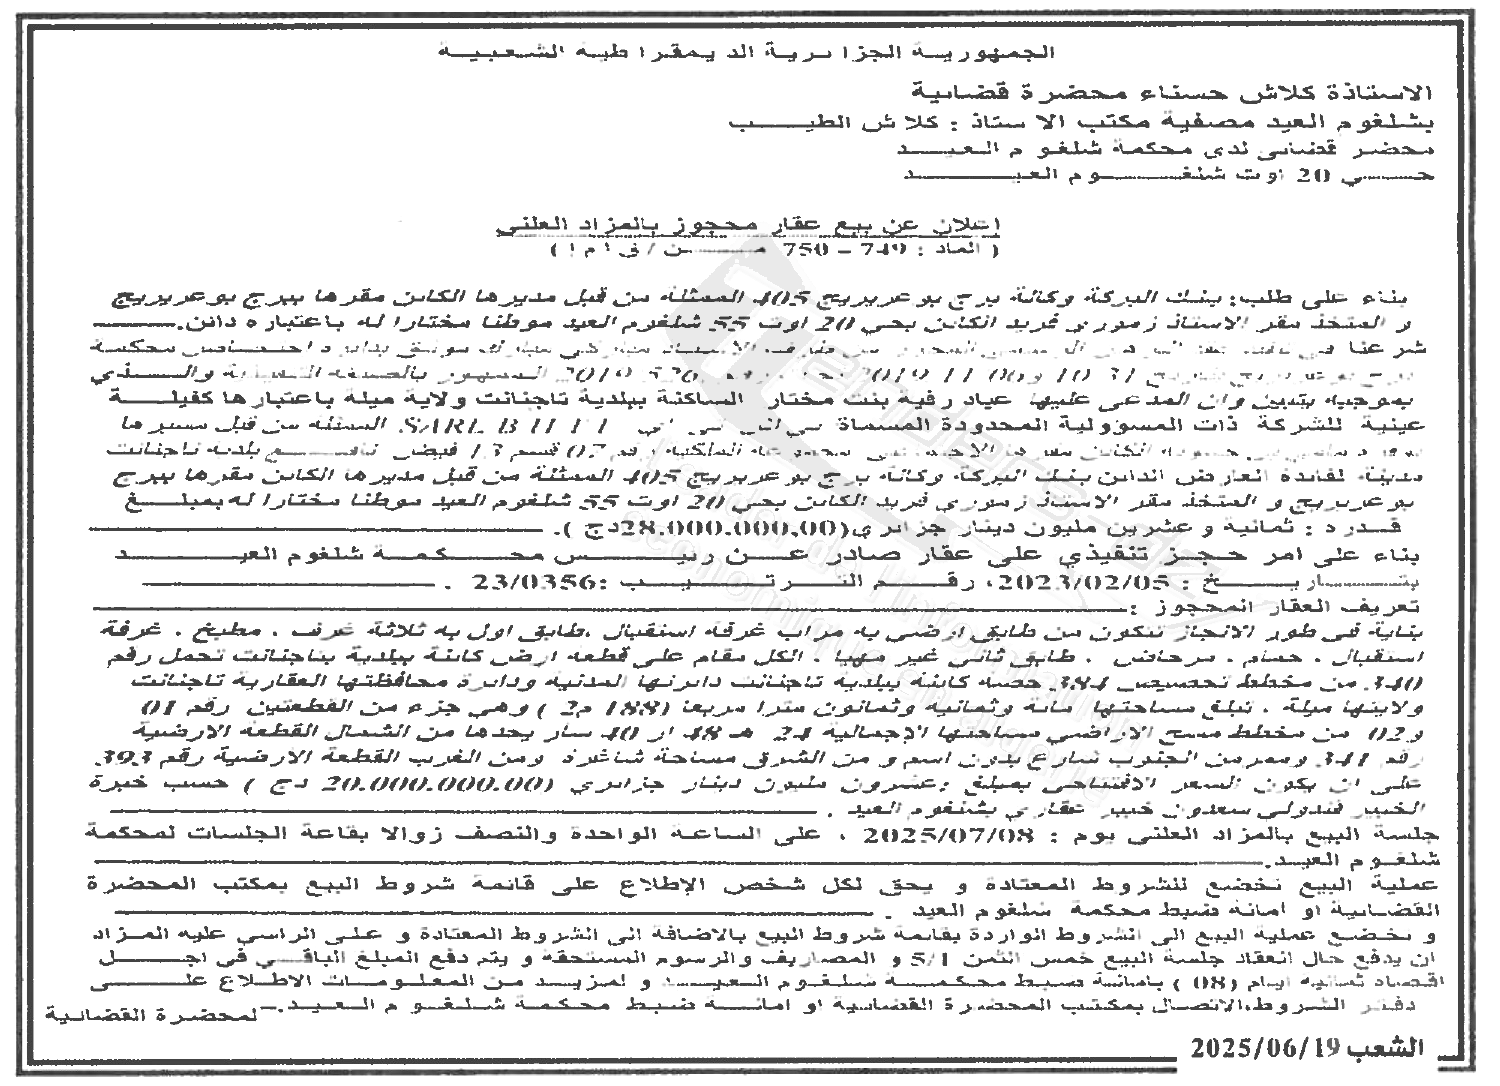 الجمهورية الجزائرية الديمقراطية الشعبية
الاستاذة كلاش حسناء محضرة قضائية
بشلغوم العيد مصفية مكتب الاستاذ : كلاش الطيب
محضر قضائي لدى محكمة شلغوم العيد
حي 20 اوت شلغوم العيد
اعلان عن بيع عقار محجوز بالمزاد العلني
( الماد : 749 – 750 من / ق ا م ا )
بناء على طلب: بنك البركة وكالة برج بوعريريج 405 الممثلة من قبل مديرها الكائن مقرها ببرج بوعريريج
و المتخذ مقر الاستاذ زموري فريد الكائن بحي 20 اوت 55 شلغوم العيد موطنا مختارا له باعتباره دائن.
شرعنا في محكمة
برج بوعريريج بتاريخ 31 10 و06 11 2019 رقم 520 2019 المشهور بالصفة التنفيذية والذي
بموجبه يتبين وان المدعى عليها عياد رقية بنت مختار الساكنة ببلدية تاجنانت ولاية ميلة باعتبارها كفيلة
عينية للشركة ذات المسؤولية المحدودة المسماة SARL B الممثلة من قبل مسيرها
الكائن مقرها الملكية رقم 07 قسم 13 بلدية تاجنانت
مدينة لفائدة العارض الدائن بنك البركة وكالة برج بوعريريج 405 الممثلة من قبل مديرها الكائن مقرها ببرج
بوعريريج و المتخذ مقر الاستاذ زموري فريد الكائن بحي 20 اوت 55 شلغوم العيد موطنا مختارا له بمبلغ
قدره : ثمانية و عشرين مليون دينار جزائري(28.000.000,00دج ).
بناء على امر حجز تنفيذي على عقار صادر عن رئيس محكمة شلغوم العيد
بتاريخ : 2023/02/05، رقم الترتيب :23/0356 .
تعريف العقار المحجوز :
بناية في طور الانجاز تتكون من طابق ارضي به مراب غرفة استقبال ،طابق اول به ثلاثة غرف ، مطبخ ، غرفة
استقبال ، حمام ، مرحاض ، طابق ثاني غير مهيا ، الكل مقام على قطعة ارض كائنة ببلدية بتاجنانت تحمل رقم
340 من مخطط تحصيص 384 حصة كائنة ببلدية تاجنانت دائرتها المدنية ودائرة محافظتها العقارية تاجنانت
ولايتها ميلة ، تبلغ مساحتها مائة وثمانية وثمانون مترا مربعا (188 م2 ) وهي جزء من القطعتين رقم 01
و02 من مخطط مسح الاراضي مساحتها الإجمالية 24 هـ 48 ار 40 سار يحدها من الشمال القطعة الارضية
رقم 341 وممر من الجنوب شارع بدون اسم و من الشرق مساحة شاغرة ومن الغرب القطعة الارضية رقم 393
على ان يكون السعر الافتتاحي بمبلغ :عشرون مليون دينار جزائري (20.000.000.00 دج ) حسب خبرة
الخبير قندولي سعدون خبير عقاري بشلغوم العيد .
جلسة البيع بالمزاد العلني يوم : 2025/07/08 ، على الساعة الواحدة والنصف زوالا بقاعة الجلسات لمحكمة
شلغوم العيد.
عملية البيع تخضع للشروط المعتادة و يحق لكل شخص الإطلاع على قائمة شروط البيع بمكتب المحضرة
القضائية او امانة ضبط محكمة شلغوم العيد .
و تخضع عملية البيع الى الشروط الواردة بقائمة شروط البيع بالاضافة الى الشروط المعتادة و على الراسي عليه المزاد
ان يدفع حال انعقاد جلسة البيع خمس الثمن 5/1 و المصاريف والرسوم المستحقة و يتم دفع المبلغ الباقي في اجل
اقصاه ثمانية ايام (08 ) بامانة ضبط محكمة شلغوم العيد و لمزيد من المعلومات الاطلاع على
دفتر الشروط،الاتصال بمكتب المحضرة القضائية او امانة ضبط محكمة شلغوم العيد.-
لمحضرة القضائية
الشعب 2025/06/19